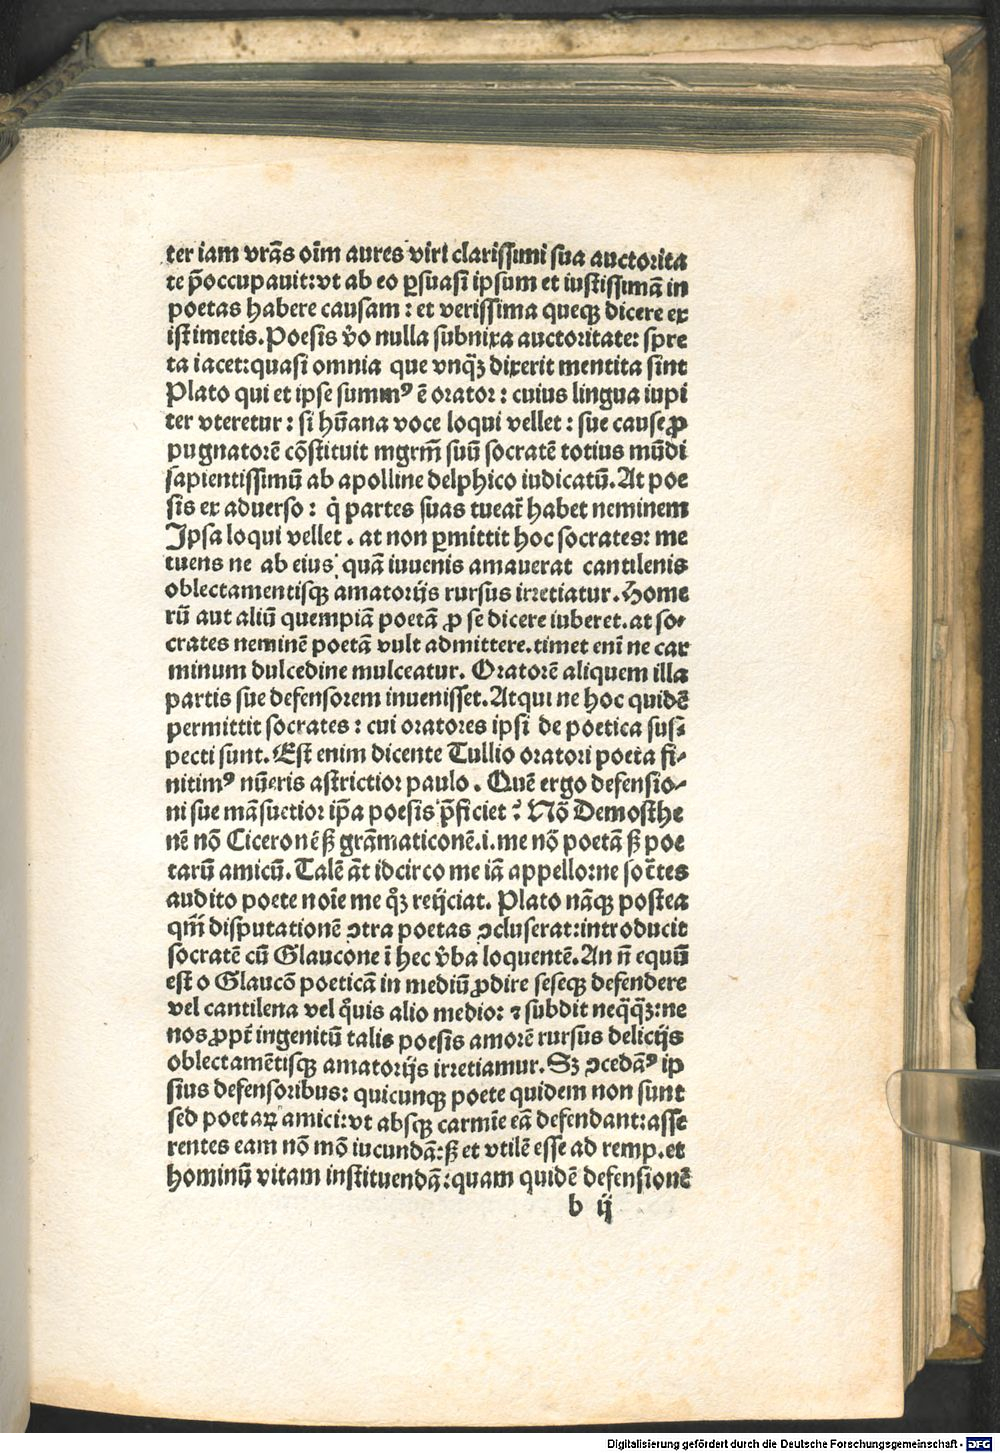 ter iam vrãs oĩm aures viri clarissimi sua auctorita
te p̃occupauit:vt ab eo ꝑsuasi ipsum et iustissimã in
poetas habere causam : et verissima queqꝫ dicere ex
istimetis. Poesis v̓o nulla subnixa auctoritate: spre
ta iacet:quasi omnia que vnqꝫ̃ dixerit mentita sint
Plato qui et ipse summꝰ ẽ orator : cuius lingua iupi
ter vteretur : si hũana voce loqui vellet : sue cause ꝓ
pugnatorẽ cõstituit mgrm̃ suũ socratẽ totius mũdi
sapientissimũ ab apolline delphico iudicatũ. At poe
sis ex aduerso : q̇ partes suas tueat᷑ habet neminem
Ipsa loqui vellet . at non ꝑmittit hoc socrates: me
tuens ne ab eius quã iuuenis amauerat cantilenis
oblectamentisqꝫ amatorijs rursus irretiatur. Home
rũ aut aliũ quempiã poetã ꝓ se dicere iuberet. at so⸗
crates neminẽ poetã vult admittere. timet eni ne car
minum dulcedine mulceatur. Oratorẽ aliquem illa
partis sue defensorem inuenisset. Atqui ne hoc quidẽ
permittit socrates : cui oratores ipsi de poetica sus⸗
pecti sunt. Est enim dicente Tullio oratori poeta fi⸗
nitimꝰ nũeris astrictior paulo . Quẽ ergo defensio⸗
ni sue mãsuetior ip̃a poesis p̃ficiet ? Nõ Demosthe
nẽ nõ Ciceronẽ ſꝫ grãmaticonẽ.i. me nõ poetã ſꝫ poe
tarũ amicũ. Talẽ ãt idcirco me iã appello:ne soc᷑tes
audito poete noĩe me qͦꝫ reijciat. Plato nãqꝫ postea
qm̃ disputationẽ ↄtra poetas ↄcluserat:introducit
socratẽ cũ Glaucone ĩ hec v̓ba loquentẽ. An ñ equũ
est o Glaucõ poeticã in mediũ ꝓdire seseqꝫ defendere
vel cantilena vel qͥuis alio medio: ⁊ subdit neq̃qꝫ̃:ne
nos ꝓpt᷑ ingenitũ talis poesis amorẽ rursus delicijs
oblectamẽtisqꝫ amatorijs irretiamur. Sꝫ ↄcedãꝰ ip
sius defensoribus: quicunqꝫ poete quidem non sunt
sed poetaꝝ amici:vt absqꝫ carmĩe eã defendant:asse
rentes eam nõ mõ iucundã:ſꝫ et vtilẽ esse ad remp. et
hominũ vitam instituendã:quam quidẽ defensionẽ
b ij
Digitalisierung gefördert durch die Deutsche Forschungsgemeinschaft - DFG